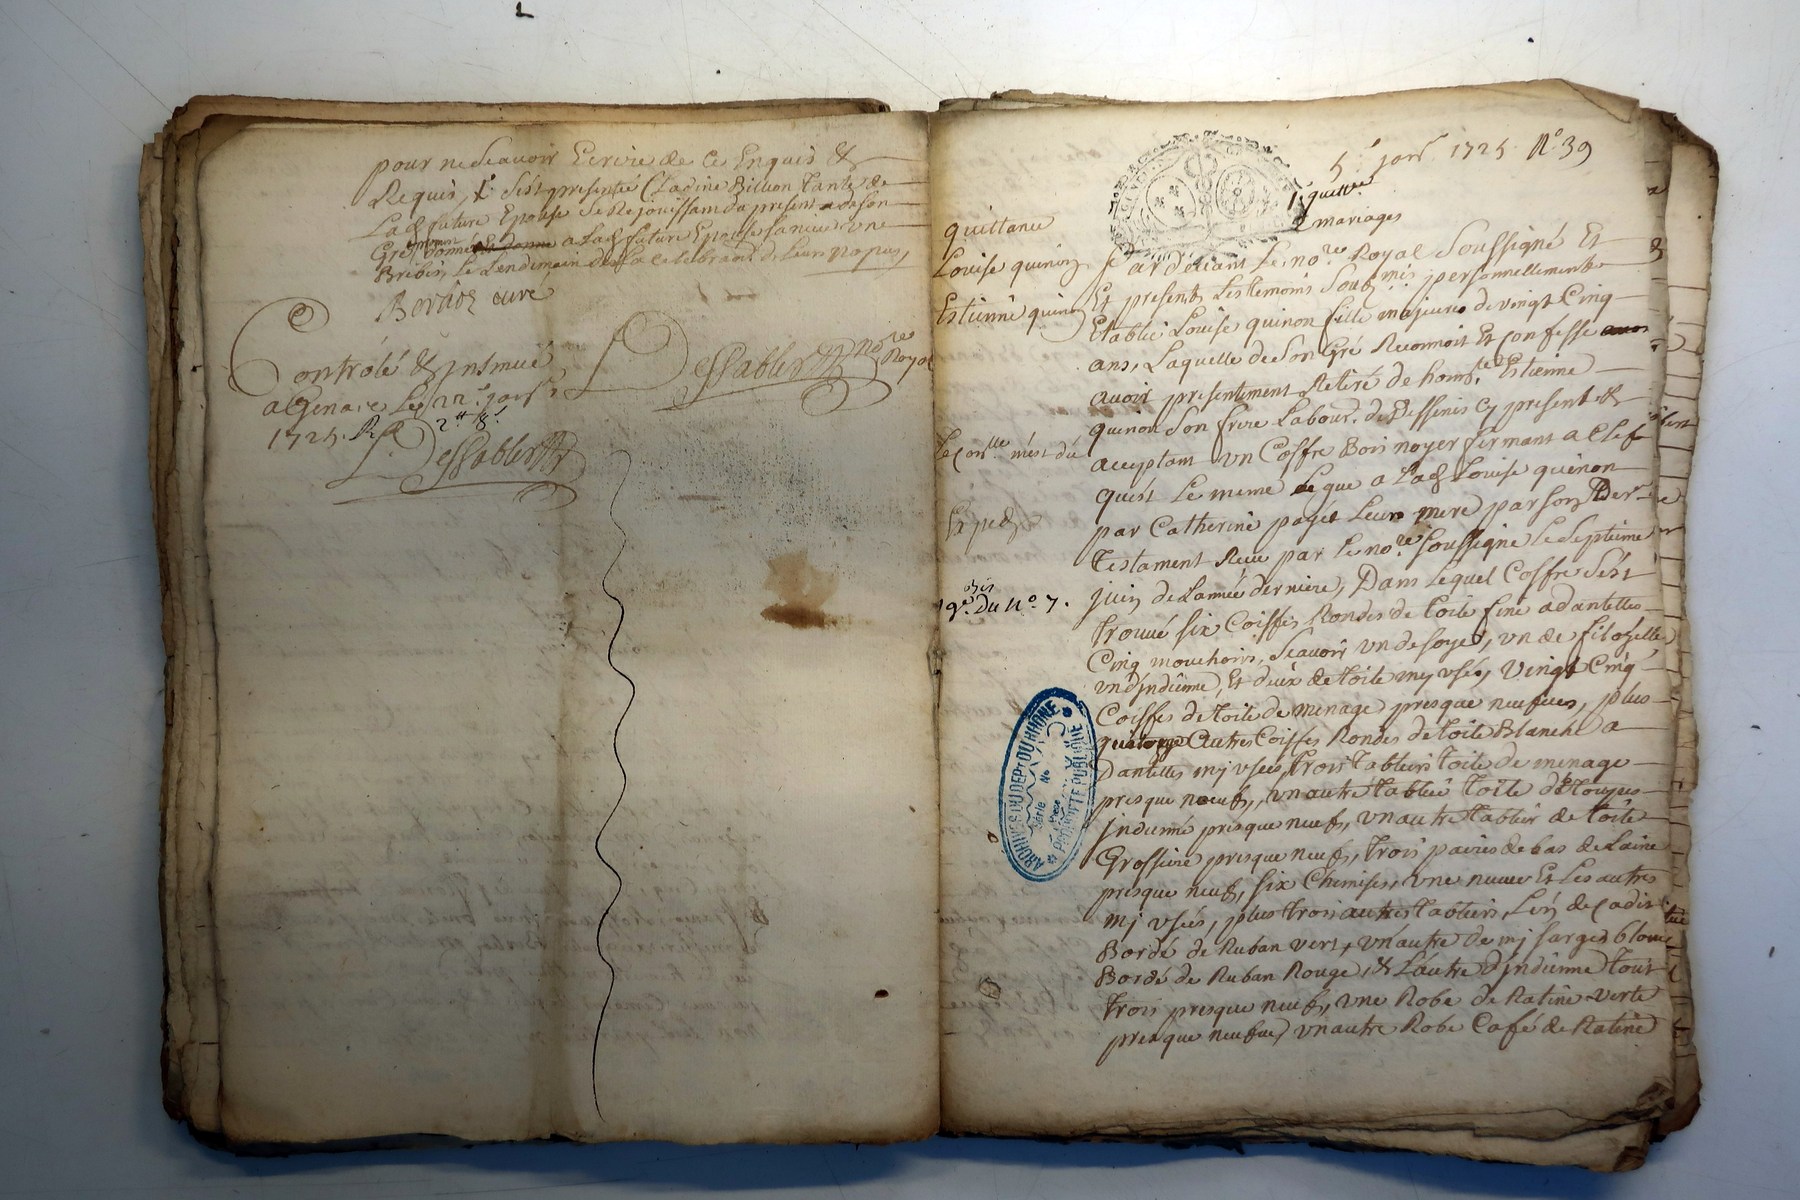 pour ne Scavoir Ecrire de ce Enquis &
Requis, & s'est presentée Cladine Billion Tante de
Lad future Epouse Se Rejouissant du present a de son
Gré donné a Lad future Epouse sa niece une
Brebis, Le Lendemain de La celebraon de Leurs nopces,
curé
Controlé & insinué
a Genave Le 22e janr
1725. R
Dessablettz No.re Royal
Dessablettz
5e janr 1725 No 39
1e quittce
2 mariages
quittance
Louise quinon
Estienne quinon
Le con.lle m'est dû
Exped
bis
9e. Du No. 7.
Par devant Le no.re Royal Soussigné Et
Et presents Les temoins Sous.nés personnellement
Etablie Louise quinon fille majeure de vingt Cinq
ans, Laquelle de Son Gré Reconnoit Et Confesse
avoir presentement Retiré de hon.ble Estienne
quinon Son frere Labour. de Dessenis Cy present &
acceptant un Coffre Bois noyer fermant a Clef
qu'est Le meme Legué a Lad Louise quinon
par Catherine paget Leur mere par son Der.
Testament Receu par Le no.re Soussigné Le Septieme
juin de L'année derniere, Dans Lequel Coffre S'est
trouvé Six Coiffes Rondes de toile fine a dantelles
Cinq mouchoirs, Scavoir un de soye, un de filozelle,
un d'indienne, Et deux de toile my usés, vingt Cinq
Coiffes de toile de menage presque neufves, plus
autres Coiffes Rondes de toile Blanche a
Dantelles my usées, trois tabliers toile de menage
presque neufs, un autre tablié toile d'étoupes
presque neufs, un autre tablier de toile
Grossiere presque neufs, trois paires de bas de Laine
presque neufs, Six Chemises, une neuve Et Les autres
my usées, plus trois autres tabliers, L'un de Cadis
Bordé de Ruban vert, un autre de my sarge bloue
Bordé de Ruban Rouge, & L'autre d'indienne tout
trois presque neufs, une Robe de Ratine verte
presque neufve, un autre Robe Café de Ratine
ARCHIVES DU DEPT DU RHONE
Série No
Pièce
PROPRIÉTÉ PUBLIQUE